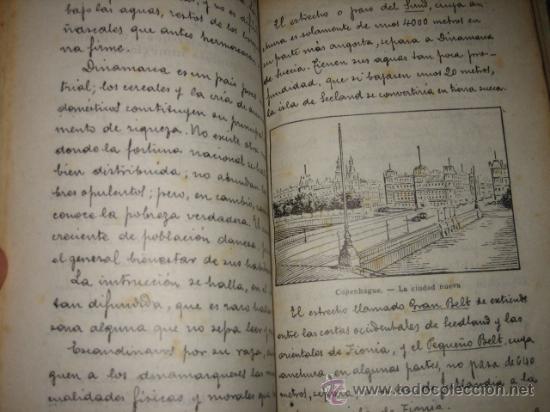 bajo las aguas, restos de los con
ñascales que antes hermosea
na firme.
Dinamarca es un país poco
trial; los cereales y la cría de an
domésticos constituyen su principal
mento de riqueza. No existe otro
donde la fortuna nacional se halle
bien distribuida; no abundan
bres opulentos; pero, en cambio,
conoce la pobreza verdadera. El
creciente de población danesa
el general bienestar de sus habi
La instrucción se halla, en
tan difundida, que es raro hallar
sona alguna que no sepa leer y
Escandinavos por su raza,
quen a los dinamarqueses las m
cualidades físicas y morales que
El estrecho o paso del Sund, cuya an
chura es solamente de unos 4000 metros en
su parte más angosta, separa a Dinamarca
de Suecia. Tienen sus aguas tan poca pro-
fundidad, que si bajasen unos 20 metros,
la isla de Seeland se convertiría en tierra sueca.
Copenhague. — La ciudad nueva
El estrecho llamado Gran Belt se extiende
entre las costas occidentales de Seeland y las
orientales de Fionia, y el Pequeño Belt, cuya
anchura, en algunas partes, no pasa de 640
metros, separa
de Fionia.
todocoleccion.net